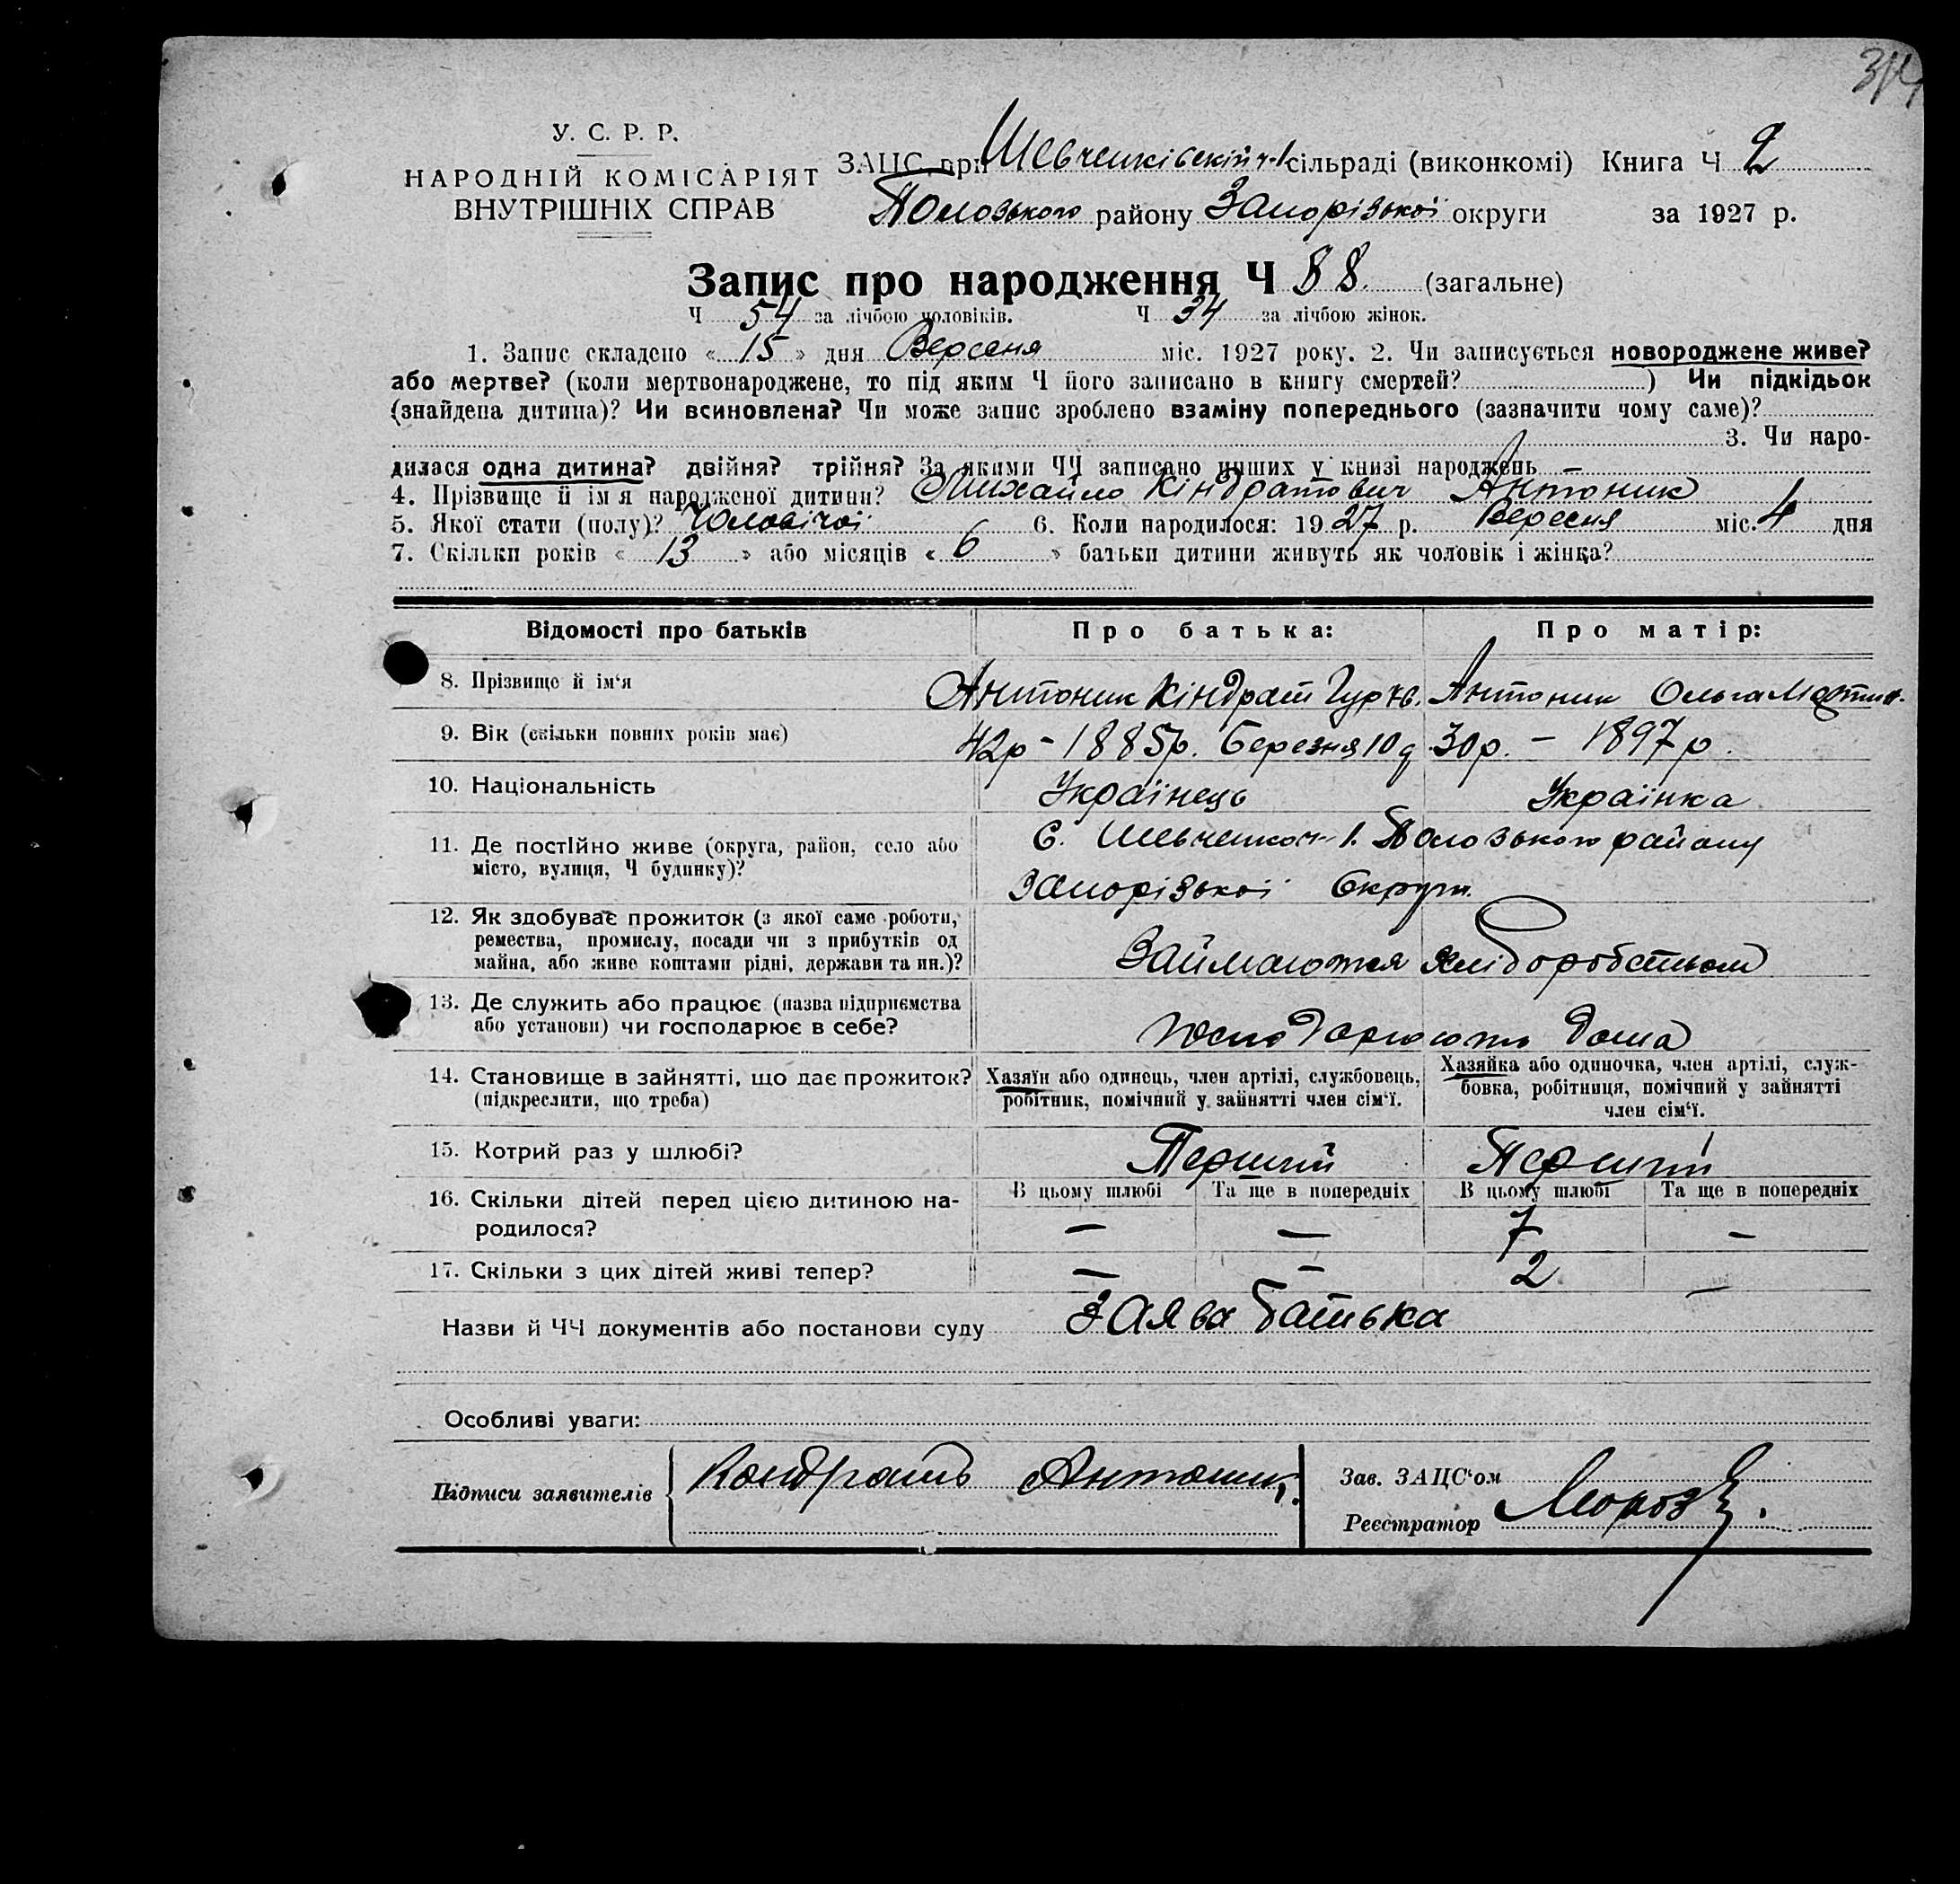 314
У. С. Р. Р.
НАРОДНІЙ КОМІСАРІЯТ
ВНУТРІШНІХ СПРАВ
ЗАЦС при Шевченківській ч-1 сільраді (виконкомі) Книга Ч 2
Пологського району Запорізької округи за 1927 р.
Запис про народження Ч 88. (загальне)
Ч 54 за лічбою чоловіків. Ч 34 за лічбою жінок.
1. Запис складено « 15 » дня Вересня міс. 1927 року. 2. Чи записується новороджене живе?
або мертве? (коли мертвонароджене, то під яким Ч його записано в книгу смертей? ) Чи підкідьок
(знайдена дитина)? Чи всиновлена? Чи може запис зроблено взаміну попереднього (зазначити чому саме)?
3. Чи наро-
дилася одна дитина? двійня? трійня? За якими ЧЧ записано инших у книзі народжень —
4. Прізвище й ім'я народженої дитини? Михайло Кіндратович Антоник
5. Якої стати (полу)? Чоловічої 6. Коли народилося: 1927 р. Вересня міс. 4 дня
7. Скільки років « 13 » або місяців « 6 » батьки дитини живуть як чоловік і жінка?
Відомості про батьків Про батька: Про матір:
8. Прізвище й ім'я Антоник Кіндрат Гурїв. Антоник Ольга Мартин.
9. Вік (скільки повних років має) 42р - 1885р. Березня 10 д 30р. - 1897 р.
10. Національність Українець Українка
11. Де постійно живе (округа, район, село або
місто, вулиця, Ч будинку)?
С. Шевченко ч-1. Пологського району
Запорізької Округи.
12. Як здобуває прожиток (з якої саме роботи,
ремества, промислу, посади чи з прибутків од
майна, або живе коштами рідні, держави та ин.)?
Займаються хліборобством
13. Де служить або працює (назва підприємства
або установи) чи господарює в себе?
Господарюють дома
14. Становище в зайнятті, що дає прожиток?
(підкреслити, що треба)
Хазяїн або одинець, член артілі, службовець,
робітник, помічний у зайнятті член сім'ї.
Хазяйка або одиночка, член артілі, служ-
бовка, робітниця, помічний у зайнятті
член сім'ї.
15. Котрий раз у шлюбі? Перший Перший
В цьому шлюбі Та ще в попередніх В цьому шлюбі Та ще в попередніх
16. Скільки дітей перед цією дитиною на-
родилося?
— — 7 —
17. Скільки з цих дітей живі тепер? — — 2 —
Назви й ЧЧ документів або постанови суду Заява батька
Особливі уваги:
Підписи заявителів Кондрать Антоник.
Зав. ЗАЦС'ом
Реєстратор Мороз